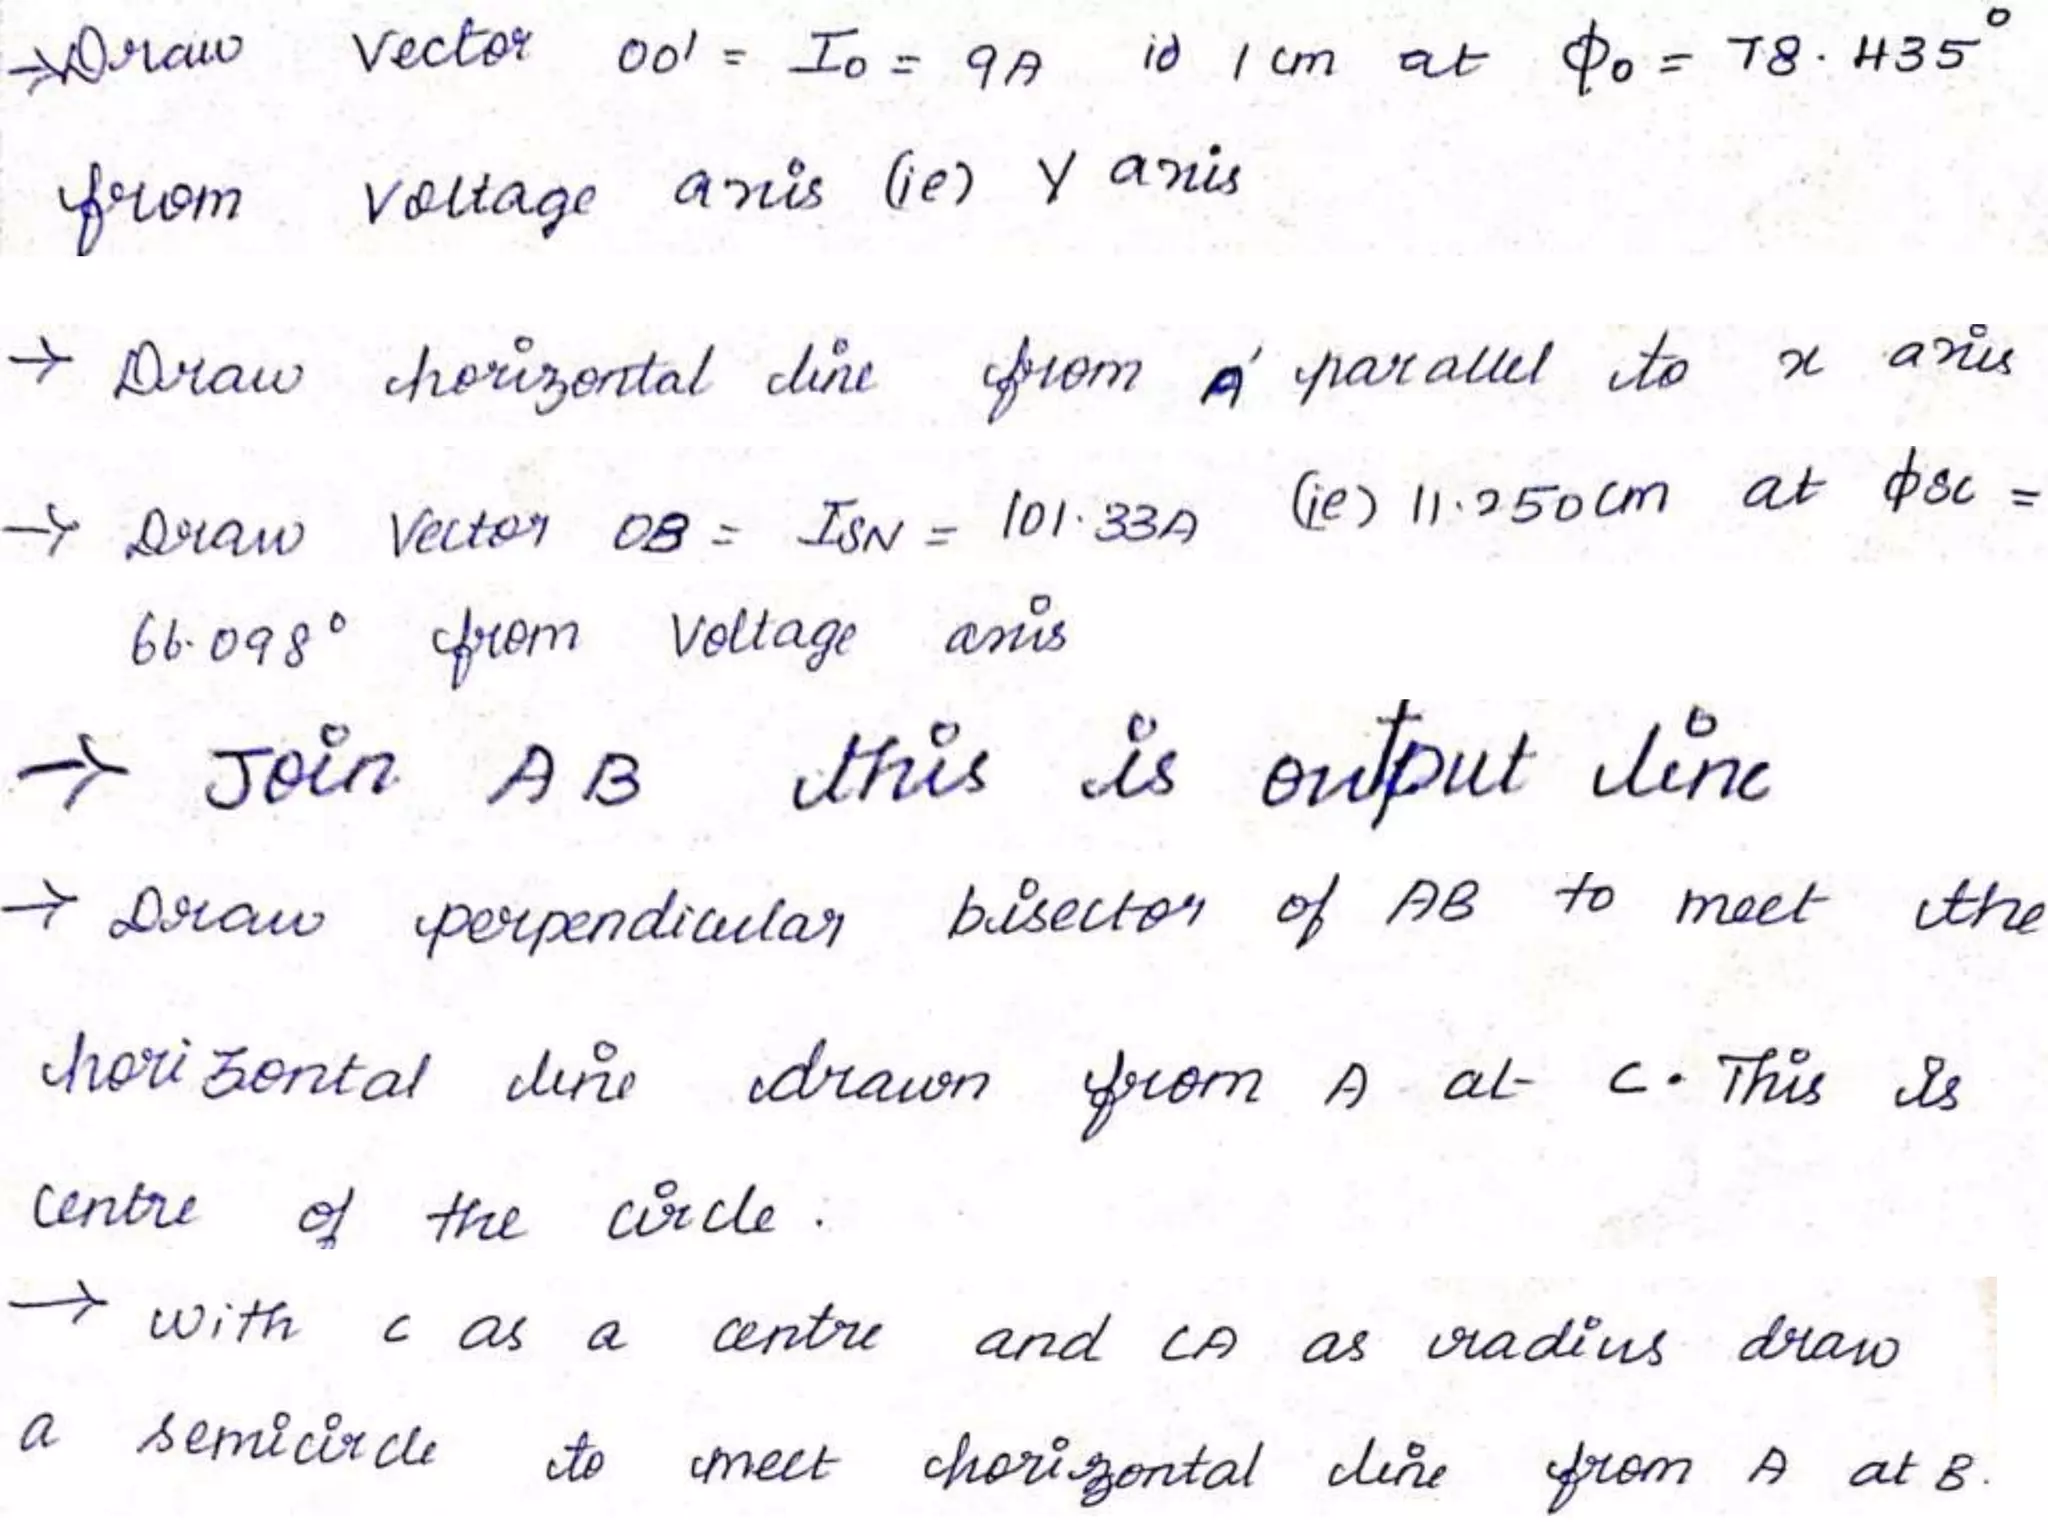 → Draw vector OO' = I₀ = 9A is 1 cm at ϕ₀ = 78.435°
from voltage axis (ie) Y axis
→ Draw horizontal line from A' parallel to x axis
→ Draw Vector OB = ISN = 101.33A (ie) 11.250cm at ϕsc =
66.098° from Voltage axis
→ Join AB this is output line
→ Draw perpendicular bisector of AB to meet the
horizontal line drawn from A at C. This is
centre of the circle.
→ with C as a centre and CA as radius draw
a semicircle to meet horizontal line from A at B.